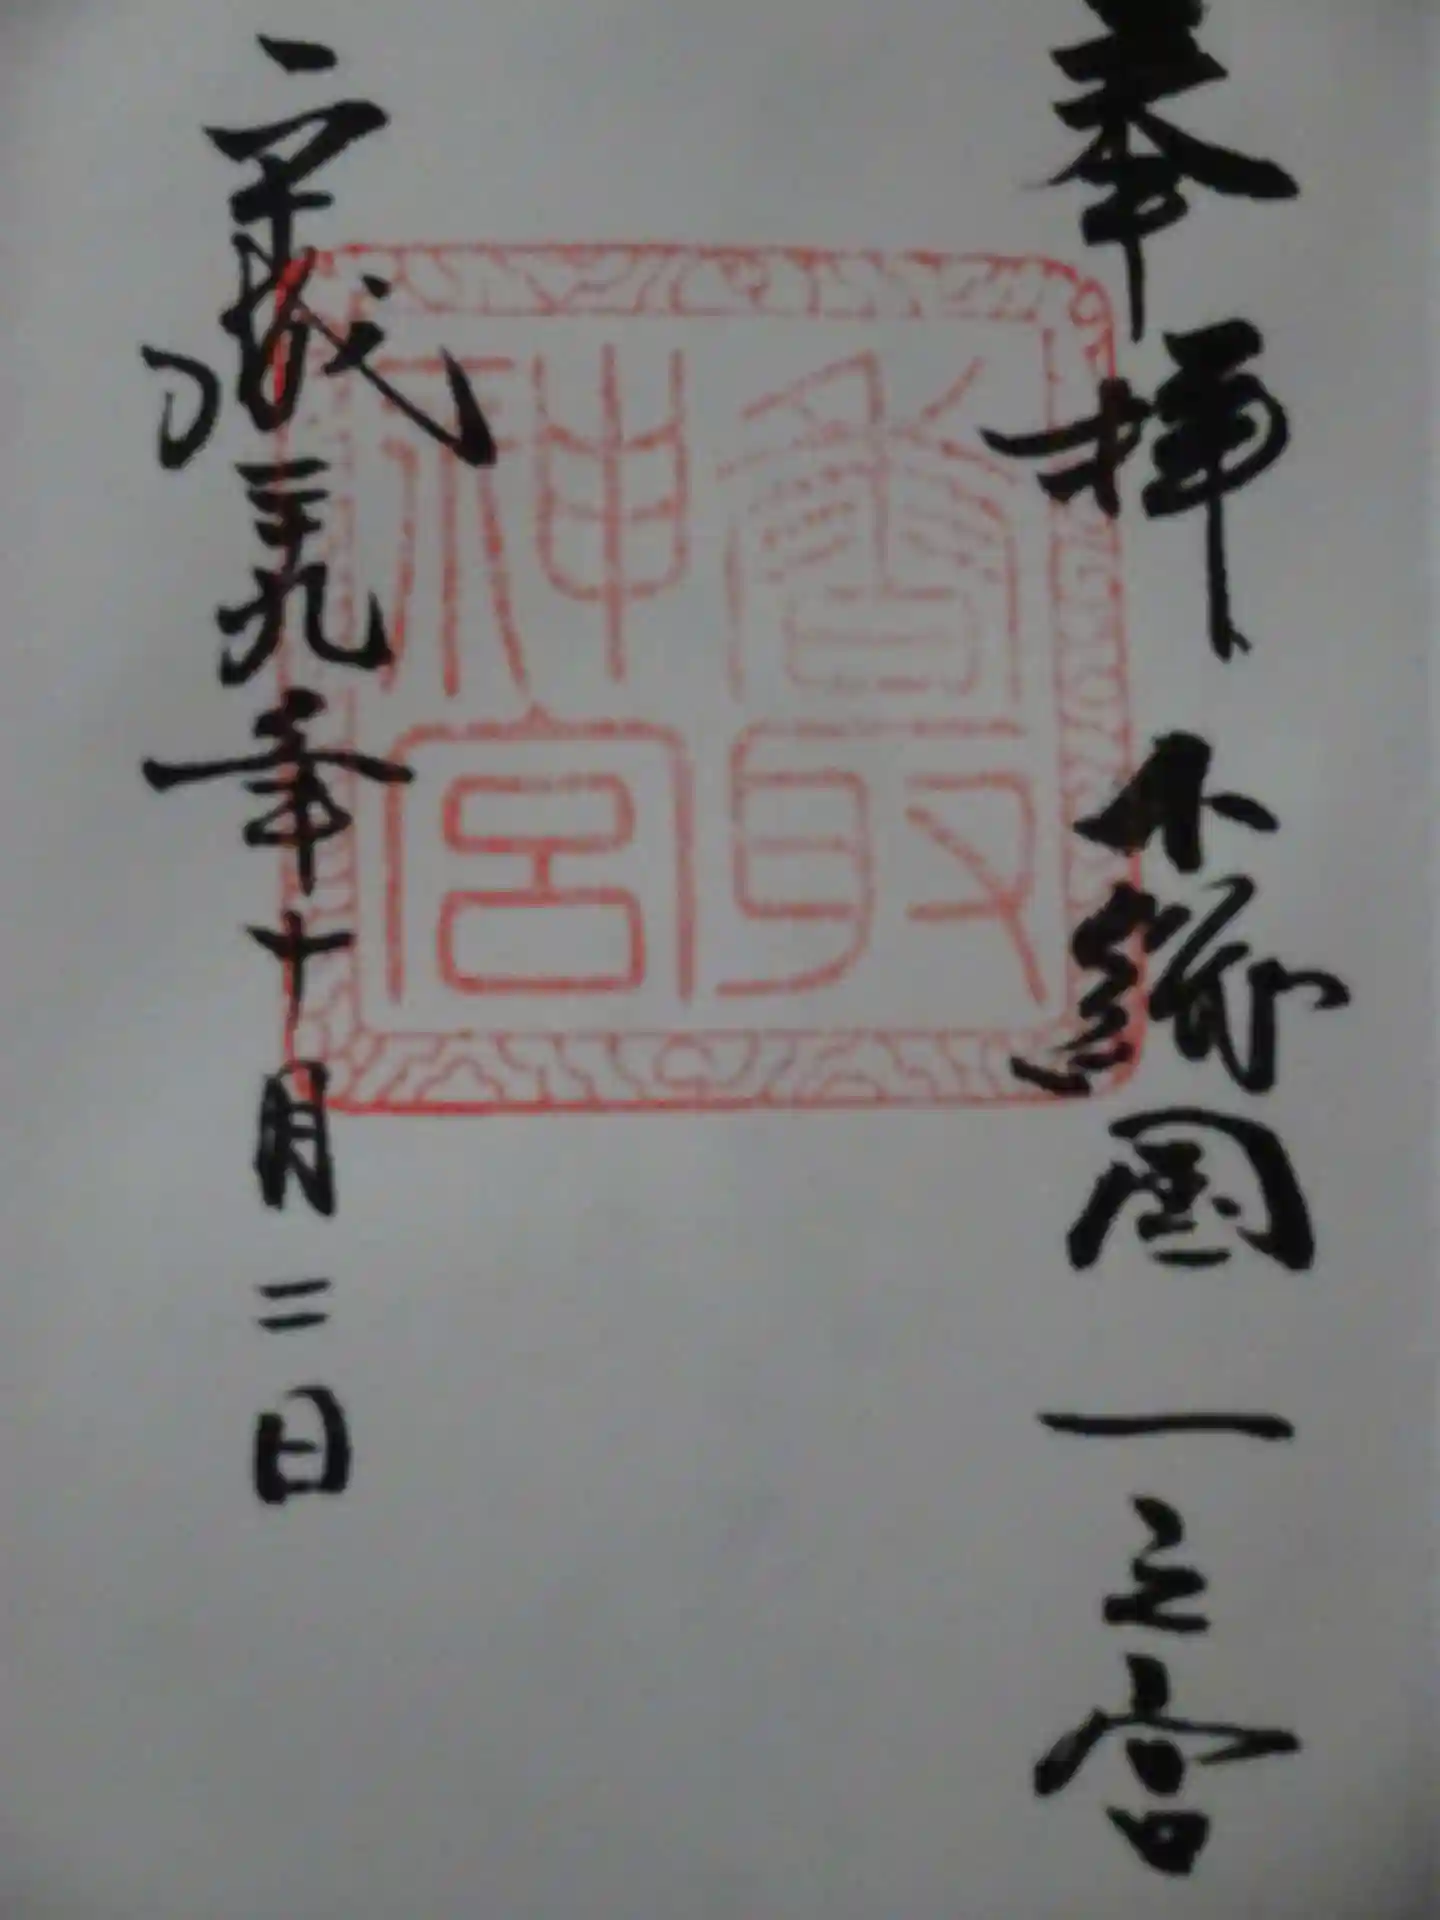 奉拝 下総国一之宮
香取
神宮
平成二十九年十月二日